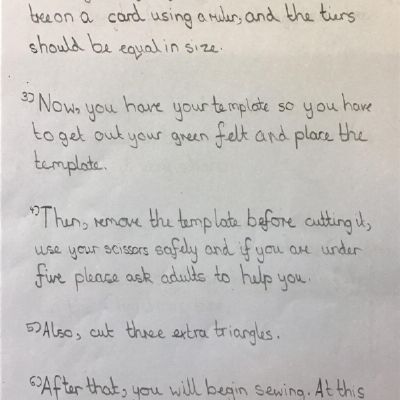 tree on a card using a ruler, and the tiers
should be equal in size.
3) Now, you have your template so you have
to get out your green felt and place the
template.
4) Then, remove the template before cutting it,
use your scissors safely and if you are under
five please ask adults to help you.
5) Also, cut three extra triangles.
6) After that, you will begin sewing. At this